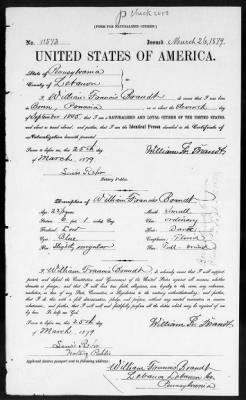 [FORM FOR NATURALIZED CITIZEN.]
No. 11573 Issued March 26, 1879.
UNITED STATES OF AMERICA.
State of Pennsylvania
County of Lebanon
I, William Francis Brandt, do swear that I was born
in
of September 1855, that I am a NATURALIZED AND LOYAL CITIZEN OF THE UNITED STATES,
and about to travel abroad, and further, that I am the Identical Person described in the Certificate of
Naturalization herewith presented.
Sworn to before me, this 25th day
of March 1879
William F. Brandt.
Notary Public.
Description of William Francis Brandt
Age: 23 years
Mouth: Small
Stature: 5 feet inches Eng.
Chin: ordinary
Forehead: Low
Hair: Dark
Eyes: Blue
Complexion:
Nose: Slightly angular
Face: Full
I, William Francis Brandt, do solemnly swear that I will support,
protect, and defend the Constitution and Government of the United States against all enemies, whether
domestic or foreign; and that I will bear true faith, allegiance, and loyalty to the same, any ordinance,
resolution, or law of any State, Convention, or Legislature to the contrary notwithstanding; and further,
that I do this with a full determination, pledge, and purpose, without any mental reservation or evasion
whatsoever; and further, that I will well and faithfully perform all the duties which may be required of me
by law. So help me God.
Sworn to before me, this 25th day
of March 1879
William F. Brandt.
Notary Public
Applicant desires passport sent to following address:
William Francis Brandt
Lebanon Lebanon Co.
Pennsylvania